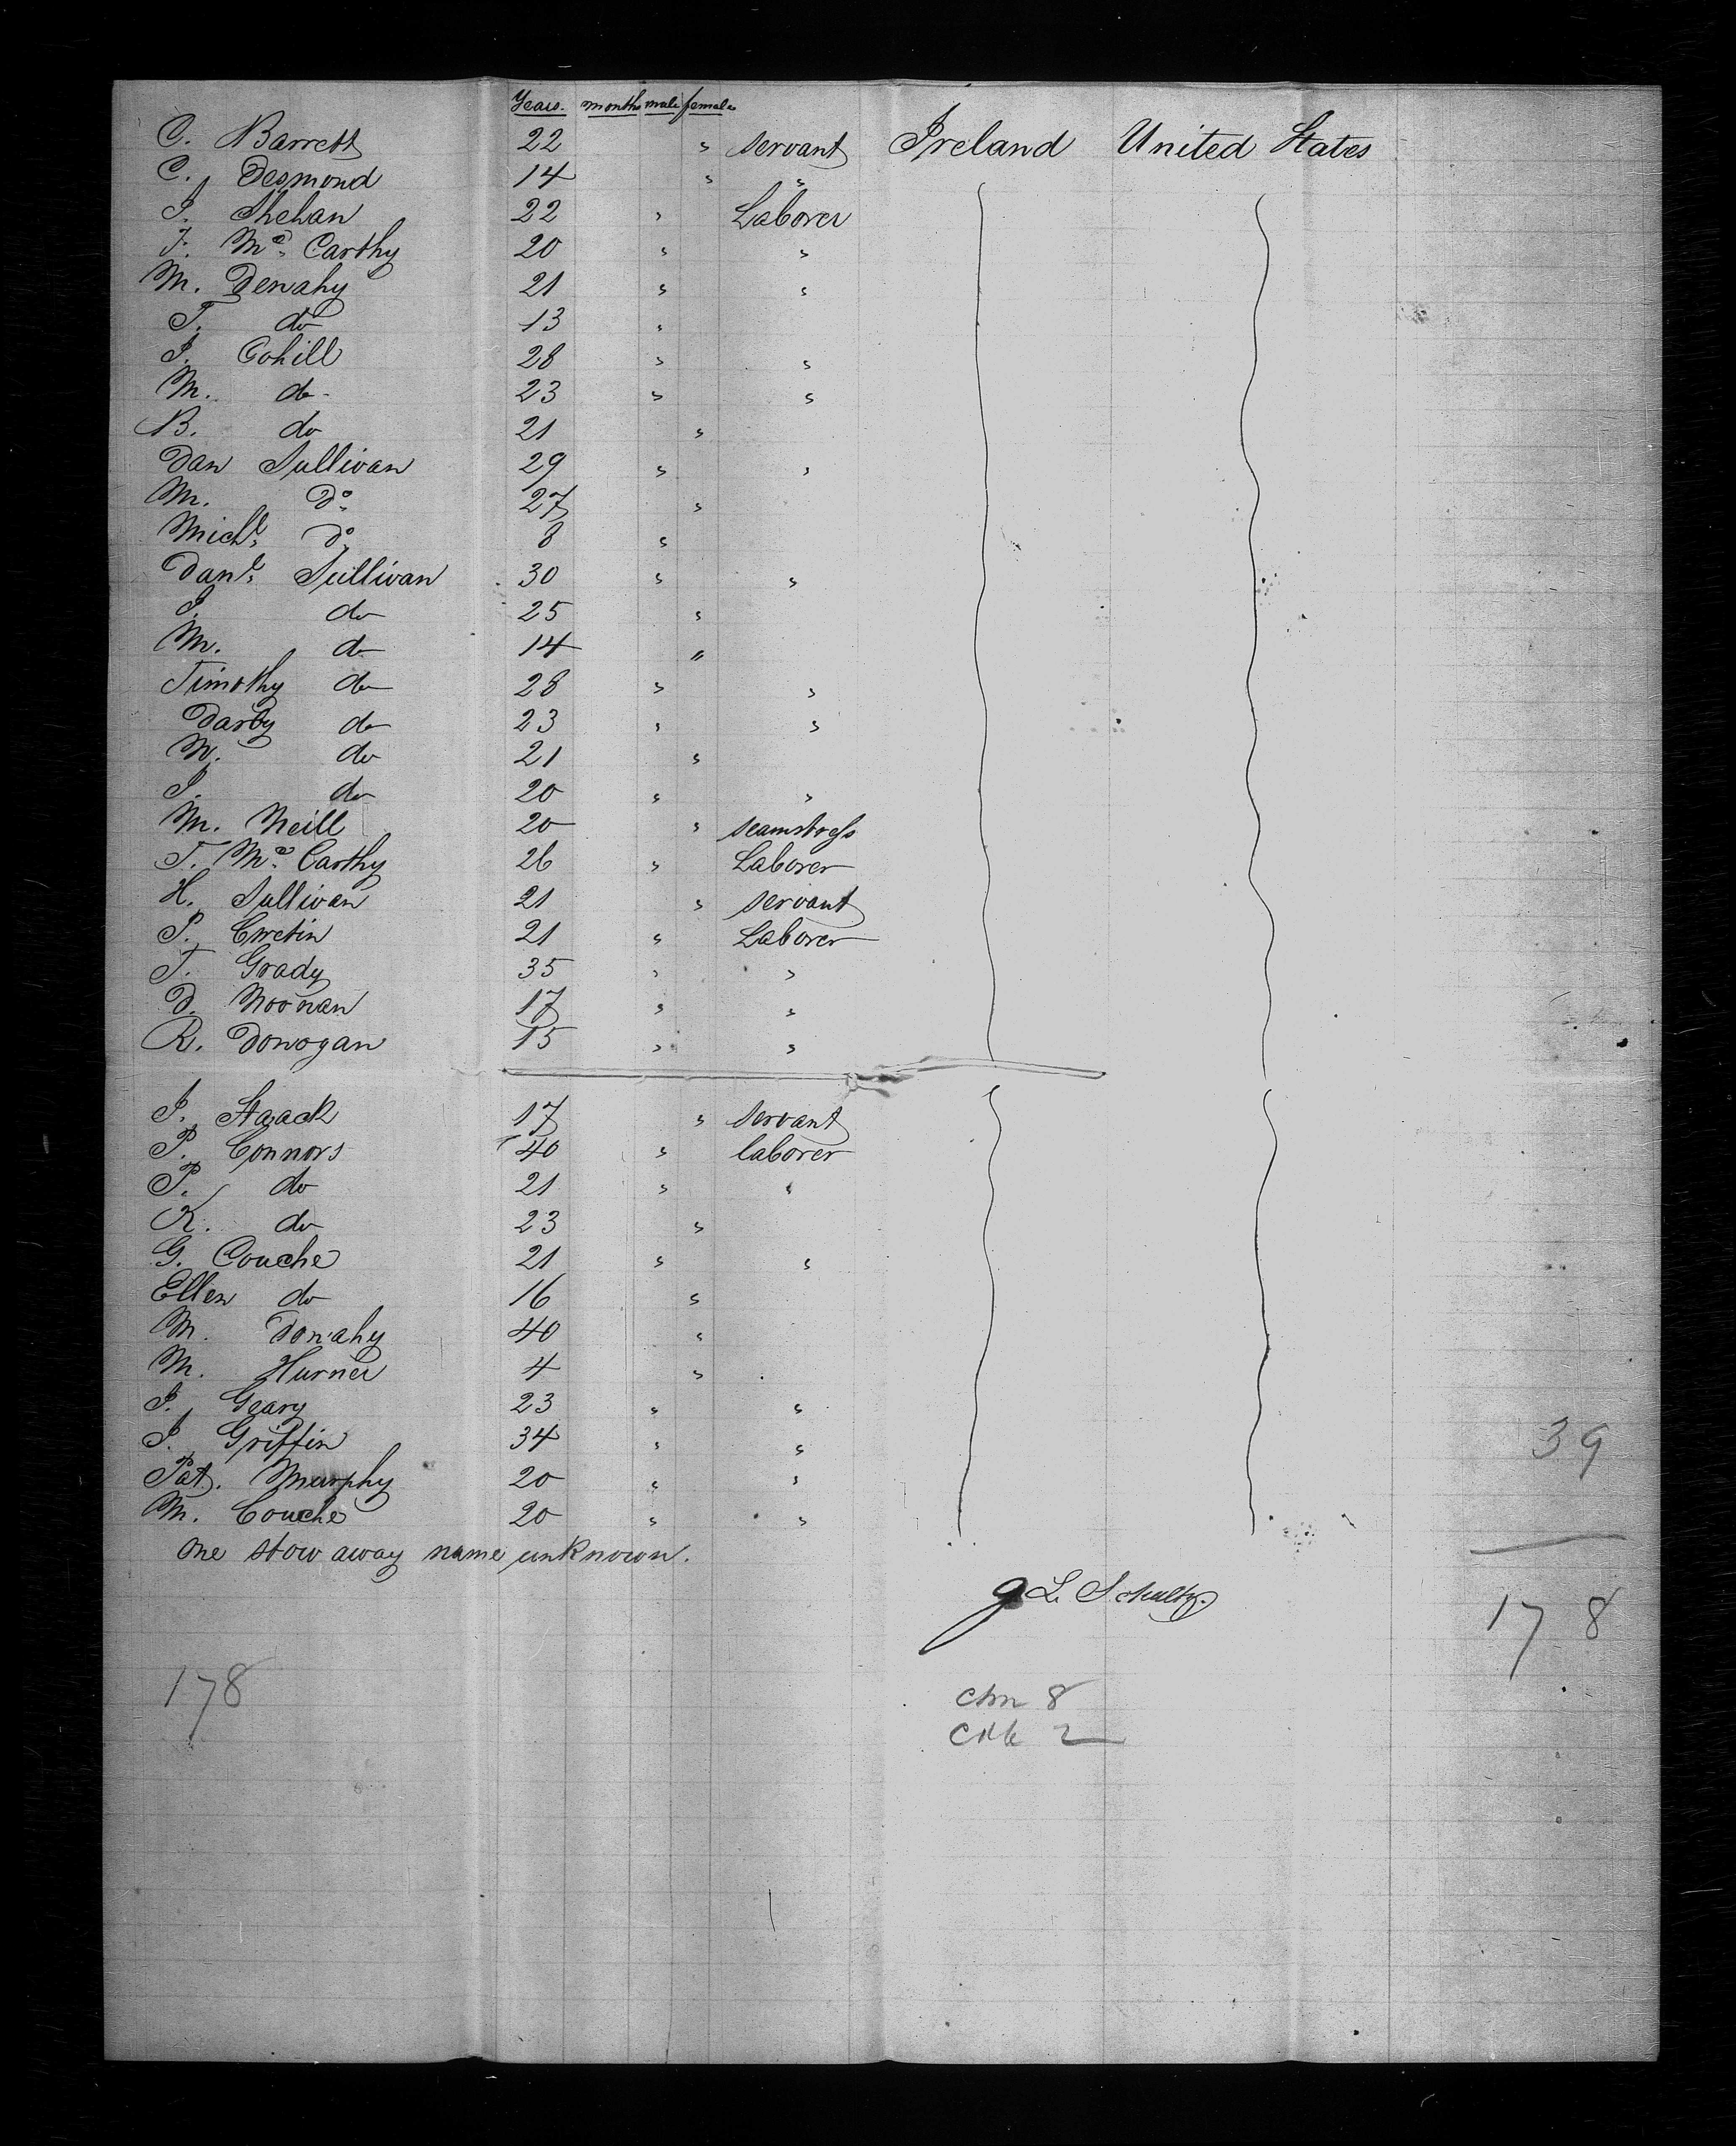 Years. months male female
C. Barrett 22 " servant Ireland United States
C. Desmond 14 " "
J. Shehan 22 " Laborer
F. Mc. Carthy 20 " "
M. Denahy 21 " "
T. do 13 "
J. Cohill 28 " "
M. do 23 " "
B. do 21 "
Dan Sullivan 29 " "
M. Do. 27 "
Michl. Do. 8 "
Danl. Sullivan 30 " "
J. do 25 "
M. do 14 "
Timothy do 28 " "
Darby do 23 " "
M. do 21 "
J. do 20 " "
M. Neill 20 " seamstress
T. Mc. Carthy 26 " Laborer
H. Sullivan 21 " servant
P. Curetin 21 " Laborer
T. Grady 35 " "
D. Noonan 17 " "
R. Donogan 15 " "
J. Staack 17 " servant
P. Connors 40 " laborer
P. do 21 " "
K. do 23 "
G. Couche 21 " "
Ellen do 16 "
M. Donahy 40 "
M. Hurner 4 "
J. Geary 23 " "
J. Griffin 34 " "
39
Pat. Murphy 20 " "
M. Couche 20 " "
one stow away name unknown.
J L. Schultz.
178
178
chn 8
2